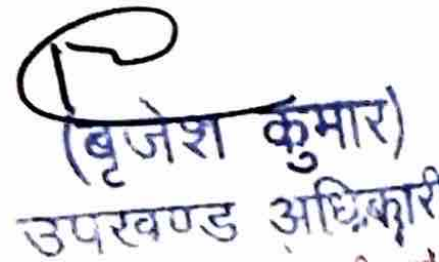 (बृजेश कुमार)
उपखण्ड अधिकारी